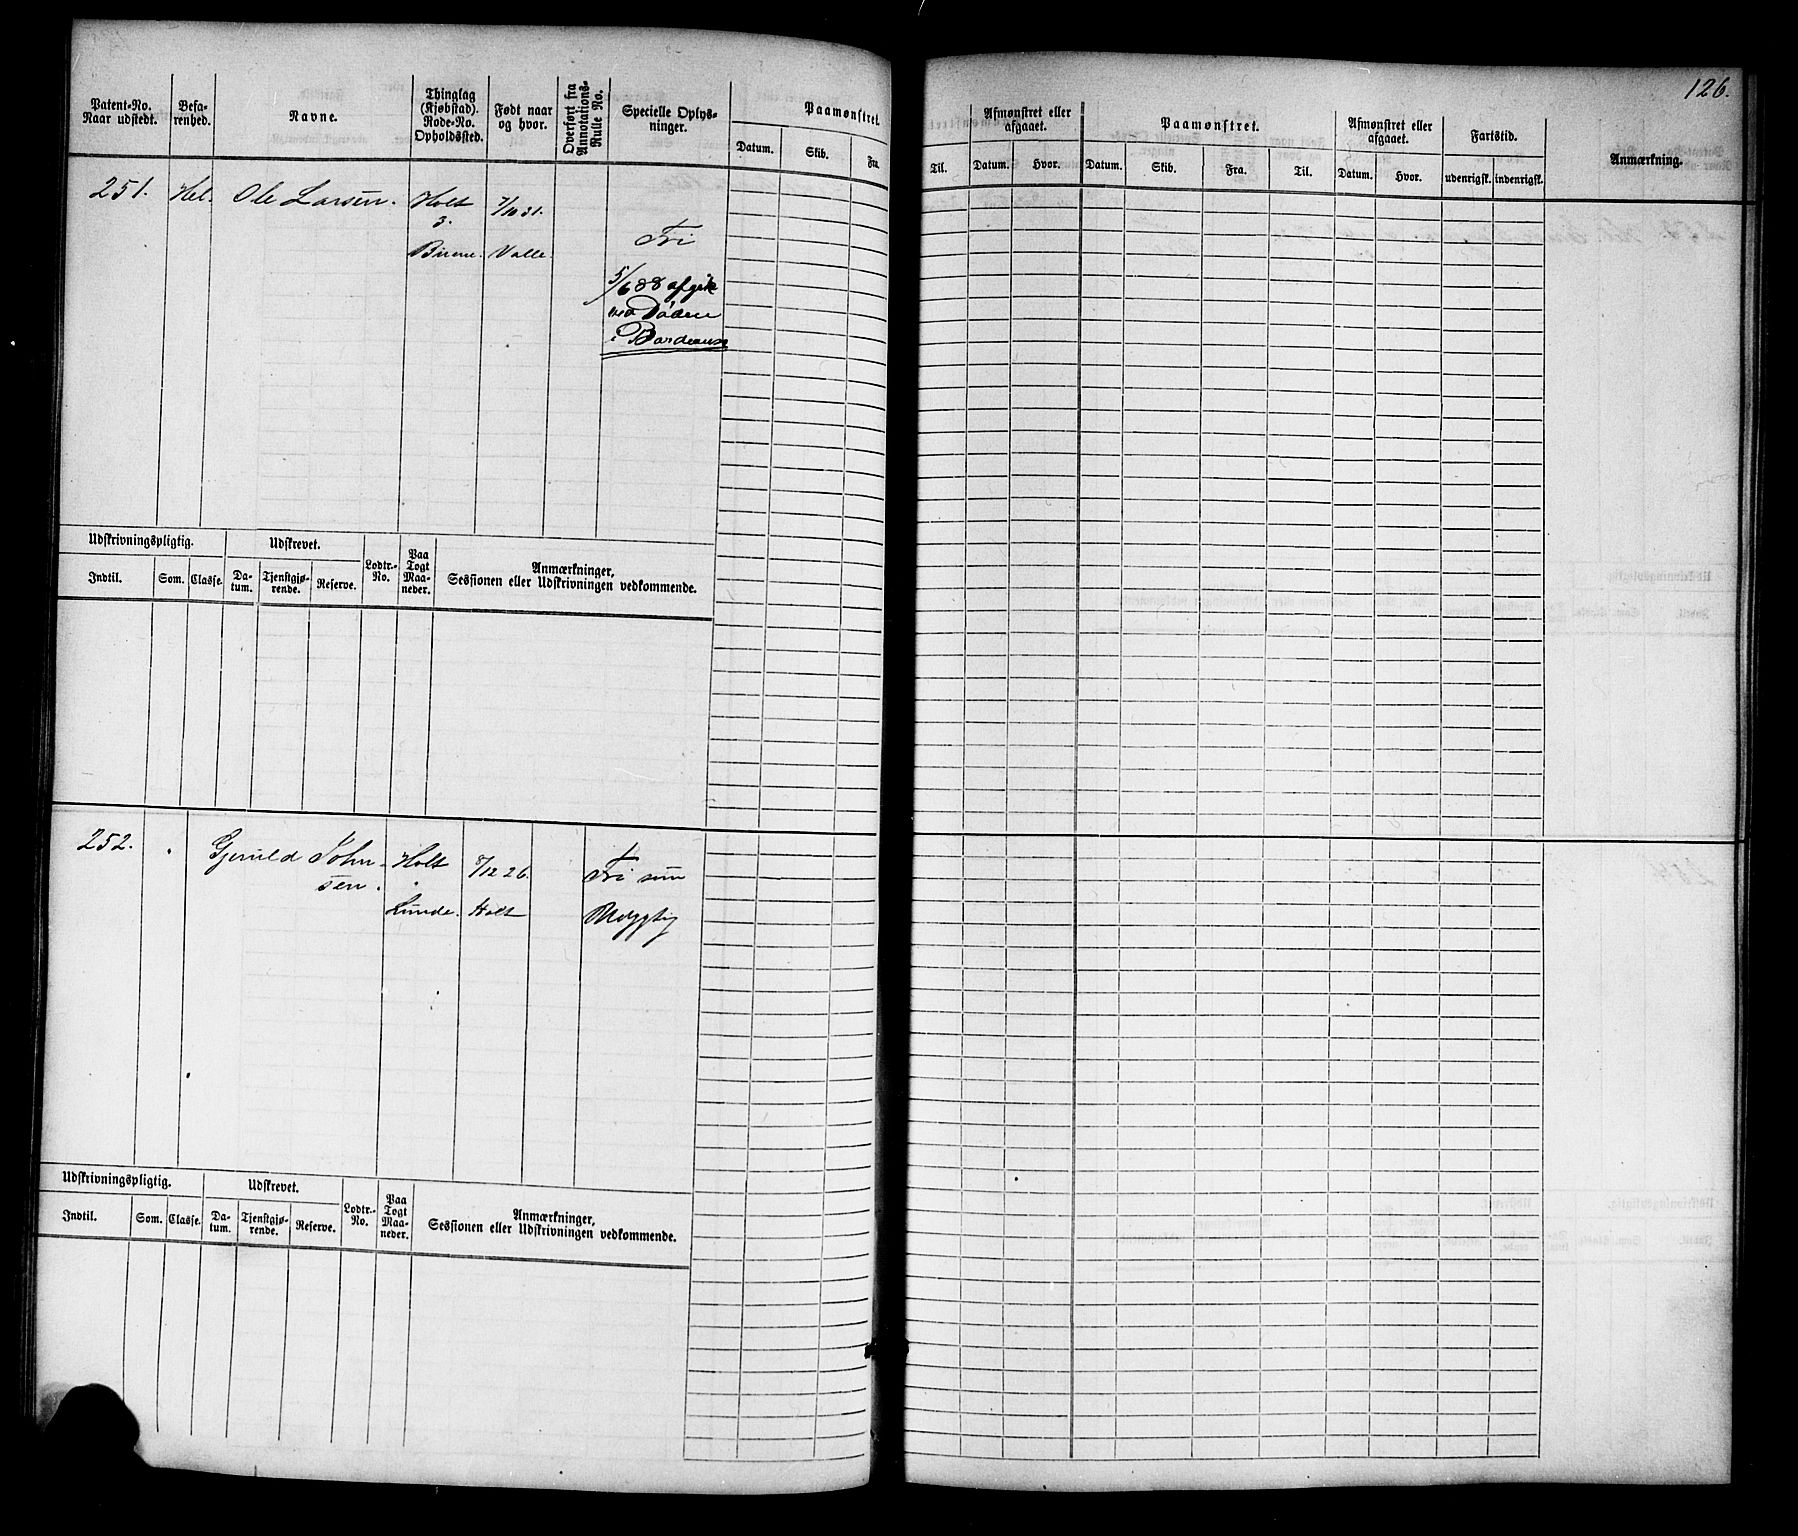 126.
Patent-No. Naar udstedt.
Befa-renhed.
Navne.
Thinglag (Kjøbstad). Rode-No. Opholdssted.
Født naar og hvor.
Overført fra Annotations-Rulle No.
Specielle Oplys-ninger.
Paamønstret.
Datum. Skib. Fra.
Til.
Afmønstret eller afgaaet.
Datum. Hvor.
Paamønstret.
Datum. Skib. Fra. Til.
Afmønstret eller afgaaet.
Datum. Hvor.
Fartstid.
udenrigsk. indenrigsk.
Anmærkning.
251. Hel. Ole Larsen. Holt 7/10 31.
3. Fri
Valle.
5/6 88 afgik
ved Døden
i Bordeaux
Udskrivningspligtig. Udskrevet. Lodtr.-No. Paa Togt Maa-neder. Anmærkninger, Sessionen eller Udskrivningen vedkommende.
Indtil. Som. Classe. Da-tum. Tjenstgjø-rende. Reserve.
252. Gjeruld John-sen. Holt 8/12 26. Fri som
Lunde. Holt
Udskrivningspligtig. Udskrevet. Lodtr.-No. Paa Togt Maa-neder. Anmærkninger, Sessionen eller Udskrivningen vedkommende.
Indtil. Som. Classe. Da-tum. Tjenstgjø-rende. Reserve.